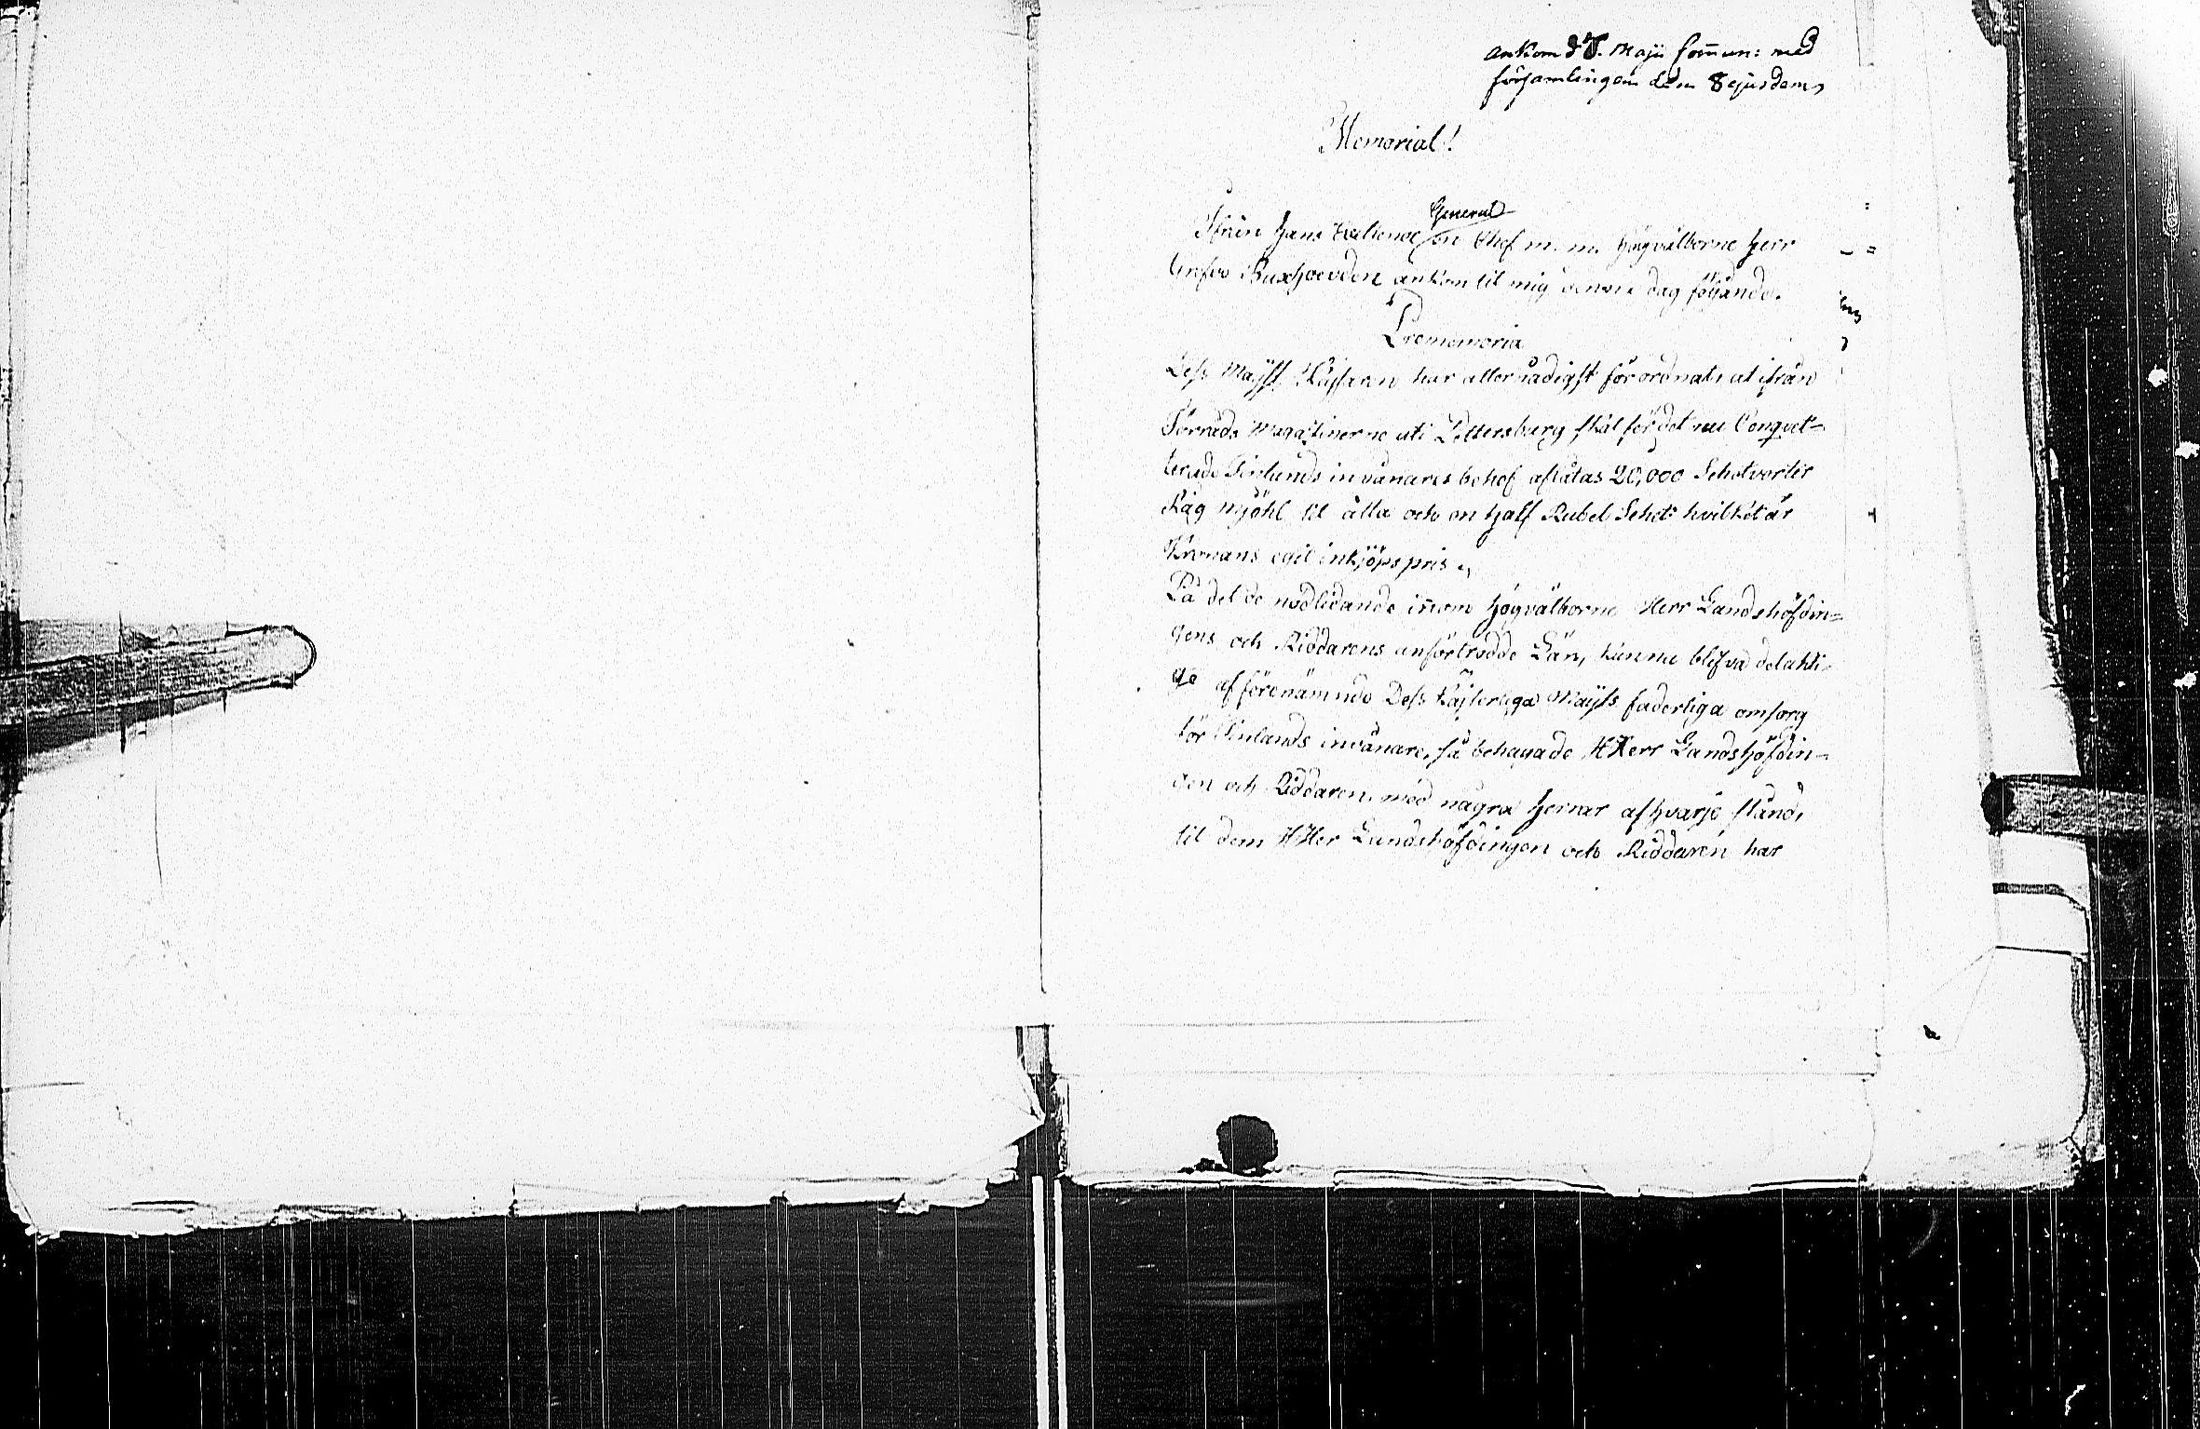 ankom d 7. Maji com̄un: med
församlingen den 8 ejusdem
Memorial!
General
Ifrån Hans Excellence en Chef m. m. Högvälborne Herr
Grefve Buxhoevden ankom til mig denna dag följande.
Promemoria
Dess Majst Kejsaren har allernådigst förordnat, at ifrån
Förråds Magazinerne uti Pettersburg skal för det nu Conquet-
terade Finlands invånares behof aflåtas 20,000 Schetvertir
Råg mjöhl til åtta och en half Rubel Schet: hvilket är
Kronans eget inkjöpspris
På det de nödlidande in̄om Högvälborne Herr Landshöfdin=
gens och Riddarens anförtrodde Län, kunna blifva delakti-
ge af förenämnde Dess Kejserliga Majts faderliga omsorg
för Finlands invånare, så behagade HHerr Landshöfdin-
gen och Riddaren med några Herrar af hvarje stånd,
til dem HHer Landshöfdingen och Riddaren har